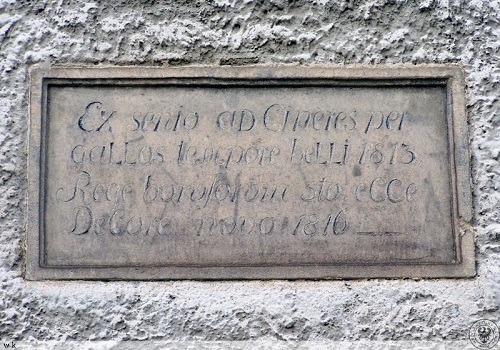 Ex senio aD Cineres per
gaLLos tempore beLLi 1813
Rege borussorum sto eCCe
DeCore novo 1816
w.k